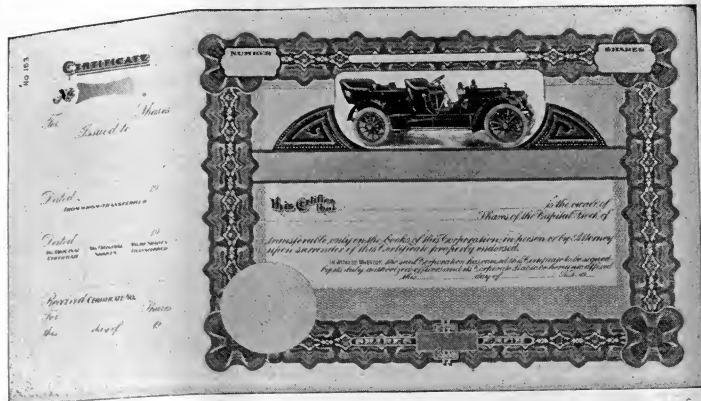 No 163
CERTIFICATE
No.
For Shares
Issued to
Dated 19
FROM WHOM TRANSFERRED
Dated 19
NO. ORIGINAL CERTIFICATE NO. ORIGINAL SHARES NO. OF SHARES TRANSFERRED
Received CERTIFICATE NO.
For Shares
this day of 19
NUMBER
SHARES
This Certifies that is the owner of
Shares of the Capital Stock of
transferable only on the books of this Corporation in person or by Attorney
upon surrender of this Certificate properly endorsed.
IN WITNESS WHEREOF, the said Corporation has caused this Certificate to be signed
by its duly authorized officers and its Corporate Seal to be hereunto affixed
this day of A.D. 19
SHARES EACH